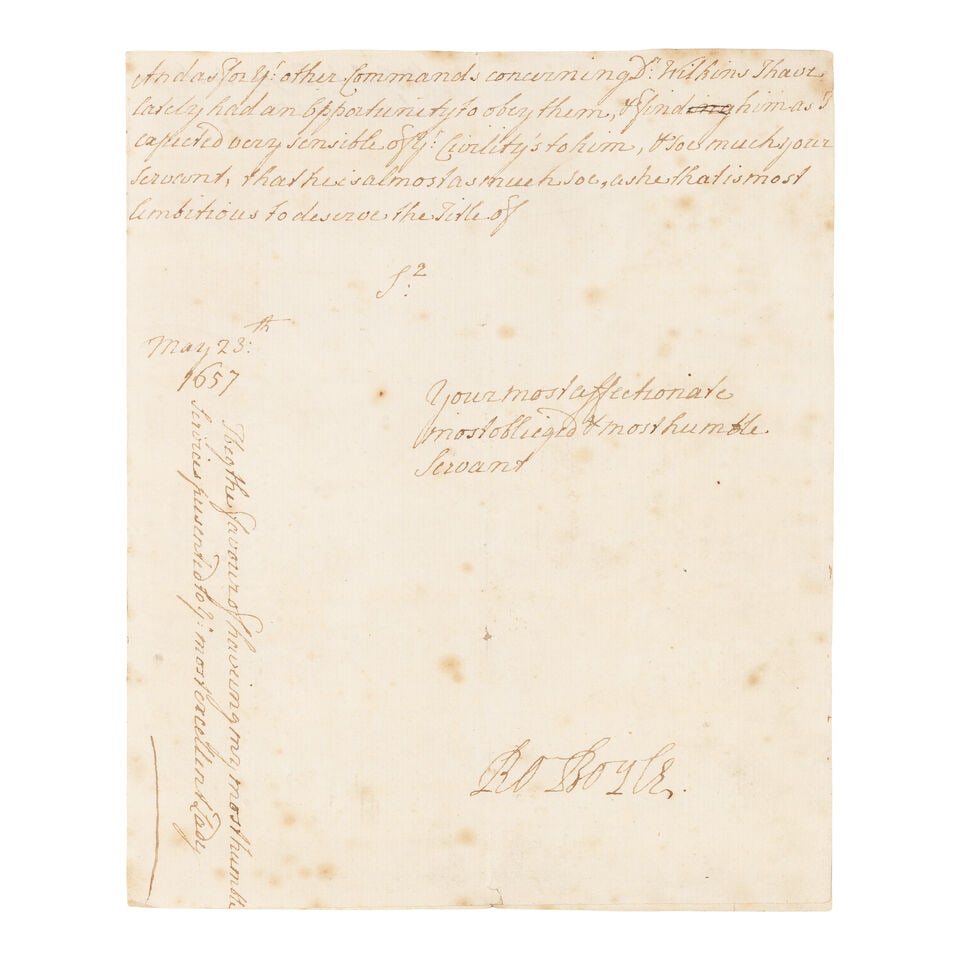 And as for yr: other Commands concerning Dr: Wilkins I have
lately had an Opportunity to obey them, & find him as I
expected very sensible of yr: Civility's to him, & soe much your
Servant, that he is almost as much soe, as he that is most
Ambitious to deserve the Title of
Sr:
May 23:th
1657
Your most affectionate
most obliged & most humble
Servant
Ro Boyle.
I beg the favour of haveing my most humble
Services presented to yr: most excellent Lady